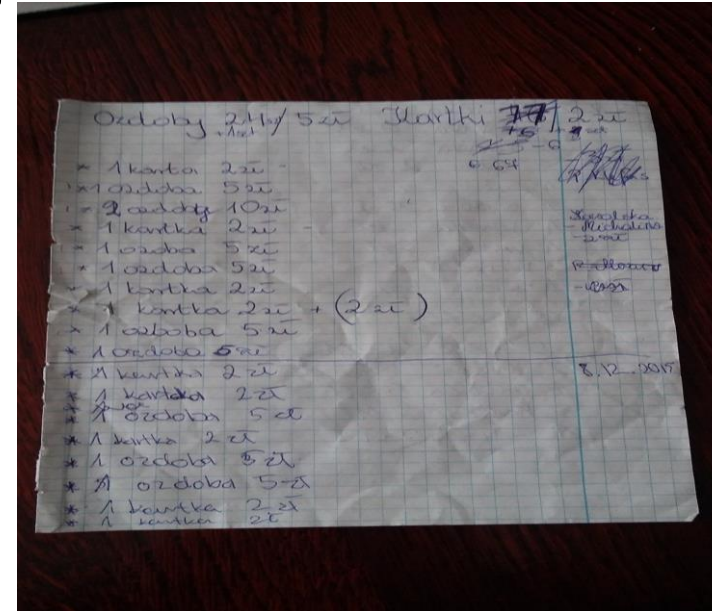 Ozdoby 5 zł Kartki 77/ 2 zł
* 1 karta 2 zł
* 1 ozdoba 5 zł
* 2 ozdoby 10 zł
* 1 kartka 2 zł
* 1 ozoba 5 zł
* 1 ozdoba 5 zł
* 1 kartka 2 zł
* 1 kartka 2 zł + (2 zł)
* 1 ozboba 5 zł
* 1 ozdoba 5 zł
* 1 kartka 2 zł
* 1 kartka 2 zł
* 1 ozdoba 5 zł
* 1 kartka 2 zł
* 1 ozdoba 5 zł
* 1 ozdoba 5 zł
* 1 kartka 2 zł
* 1 kartka 2 zł
- Michalina
8.12.2015